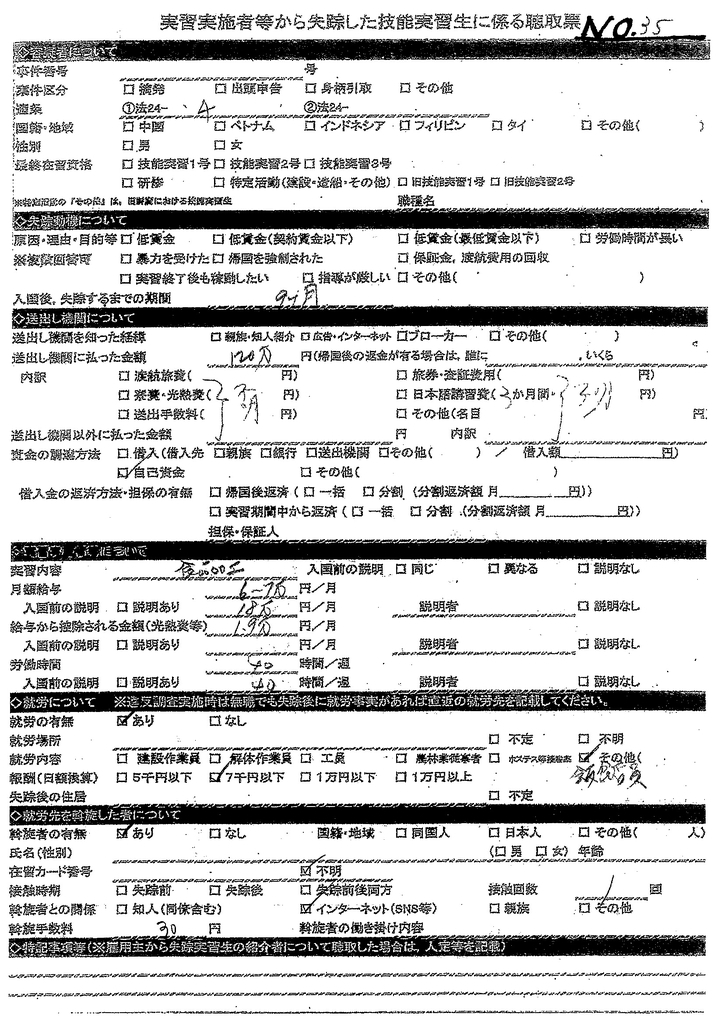 実習実施者等から失踪した技能実習生に係る聴取票 NO.35
事件番号 号
事件区分 □ 摘発 □ 出頭申告 □ 身柄引取 □ その他
違条 ①法24- 4 ②法24-
国籍・地域 □ 中国 □ ベトナム □ インドネシア □ フィリピン □ タイ □ その他( )
性別 □ 男 □ 女
最終在留資格 □ 技能実習1号 □ 技能実習2号 □ 技能実習3号
□ 研修 □ 特定活動(建設・造船・その他) □ 旧技能実習1号 □ 旧技能実習2号
職種名
◇失踪動機について
原因・理由・目的等 □ 低賃金 □ 低賃金(契約賃金以下) □ 低賃金(最低賃金以下) □ 労働時間が長い
※複数回答可 □ 暴力を受けた □ 帰国を強制された □ 保証金,渡航費用の回収
□ 実習終了後も稼働したい □ 指導が厳しい □ その他( )
入国後,失踪するまでの期間 9ヶ月
◇送出し機関について
送出し機関を知った経緯 □ 親族・知人紹介 □ 広告・インターネット □ ブローカー □ その他( )
送出し機関に払った金額 120万 円(帰国後の返金が有る場合は,誰に ,いくら
内訳 □ 渡航旅費( 円) □ 旅券・査証費用( 円)
□ 寮費・光熱費( 不明 円) □ 日本語講習費( か月間・ 不明 円)
□ 送出手数料( 円) □ その他(名目 / 円)
送出し機関以外に払った金額 円 内訳
資金の調達方法 □ 借入(借入先 □ 親族 □ 銀行 □ 送出機関 □ その他( ) / 借入額 円)
☑ 自己資金 □ その他( )
借入金の返済方法・担保の有無 □ 帰国後返済(□ 一括 □ 分割 (分割返済額 月 円))
□ 実習期間中から返済(□ 一括 □ 分割 (分割返済額 月 円))
担保・保証人
実習内容 入国前の説明 □ 同じ □ 異なる □ 説明なし
月額給与 6~7万 円/月
入国前の説明 □ 説明あり 18万 円/月 説明者 □ 説明なし
給与から控除される金額(光熱費等) 1.9万 円/月
入国前の説明 □ 説明あり 円/月 説明者 □ 説明なし
労働時間 40 時間/週
入国前の説明 □ 説明あり 40 時間/週 説明者 □ 説明なし
◇就労について ※違反調査実施時は無職でも失踪後に就労事実があれば直近の就労先を記載してください。
就労の有無 ☑ あり □ なし
就労場所 □ 不定 □ 不明
就労内容 □ 建設作業員 □ 解体作業員 □ 工員 □ 農林業従事者 □ ホステス等接客業 ☑ その他(
報酬(日額換算) □ 5千円以下 ☑ 7千円以下 □ 1万円以下 □ 1万円以上
失踪後の住居 □ 不定
◇就労先を斡旋した者について
斡旋者の有無 ☑ あり □ なし 国籍・地域 □ 同国人 □ 日本人 □ その他( 人)
氏名(性別) (□ 男 □ 女) 年齢
在留カード番号 ☑ 不明
接触時期 □ 失踪前 □ 失踪後 □ 失踪前後両方 接触回数 1 回
斡旋者との関係 □ 知人(同僚含む) ☑ インターネット(SNS等) □ 親族 □ その他
斡旋手数料 30 円 斡旋者の働き掛け内容
◇特記事項等(※雇用主から失踪実習生の紹介者について聴取した場合は,人定等を記載)